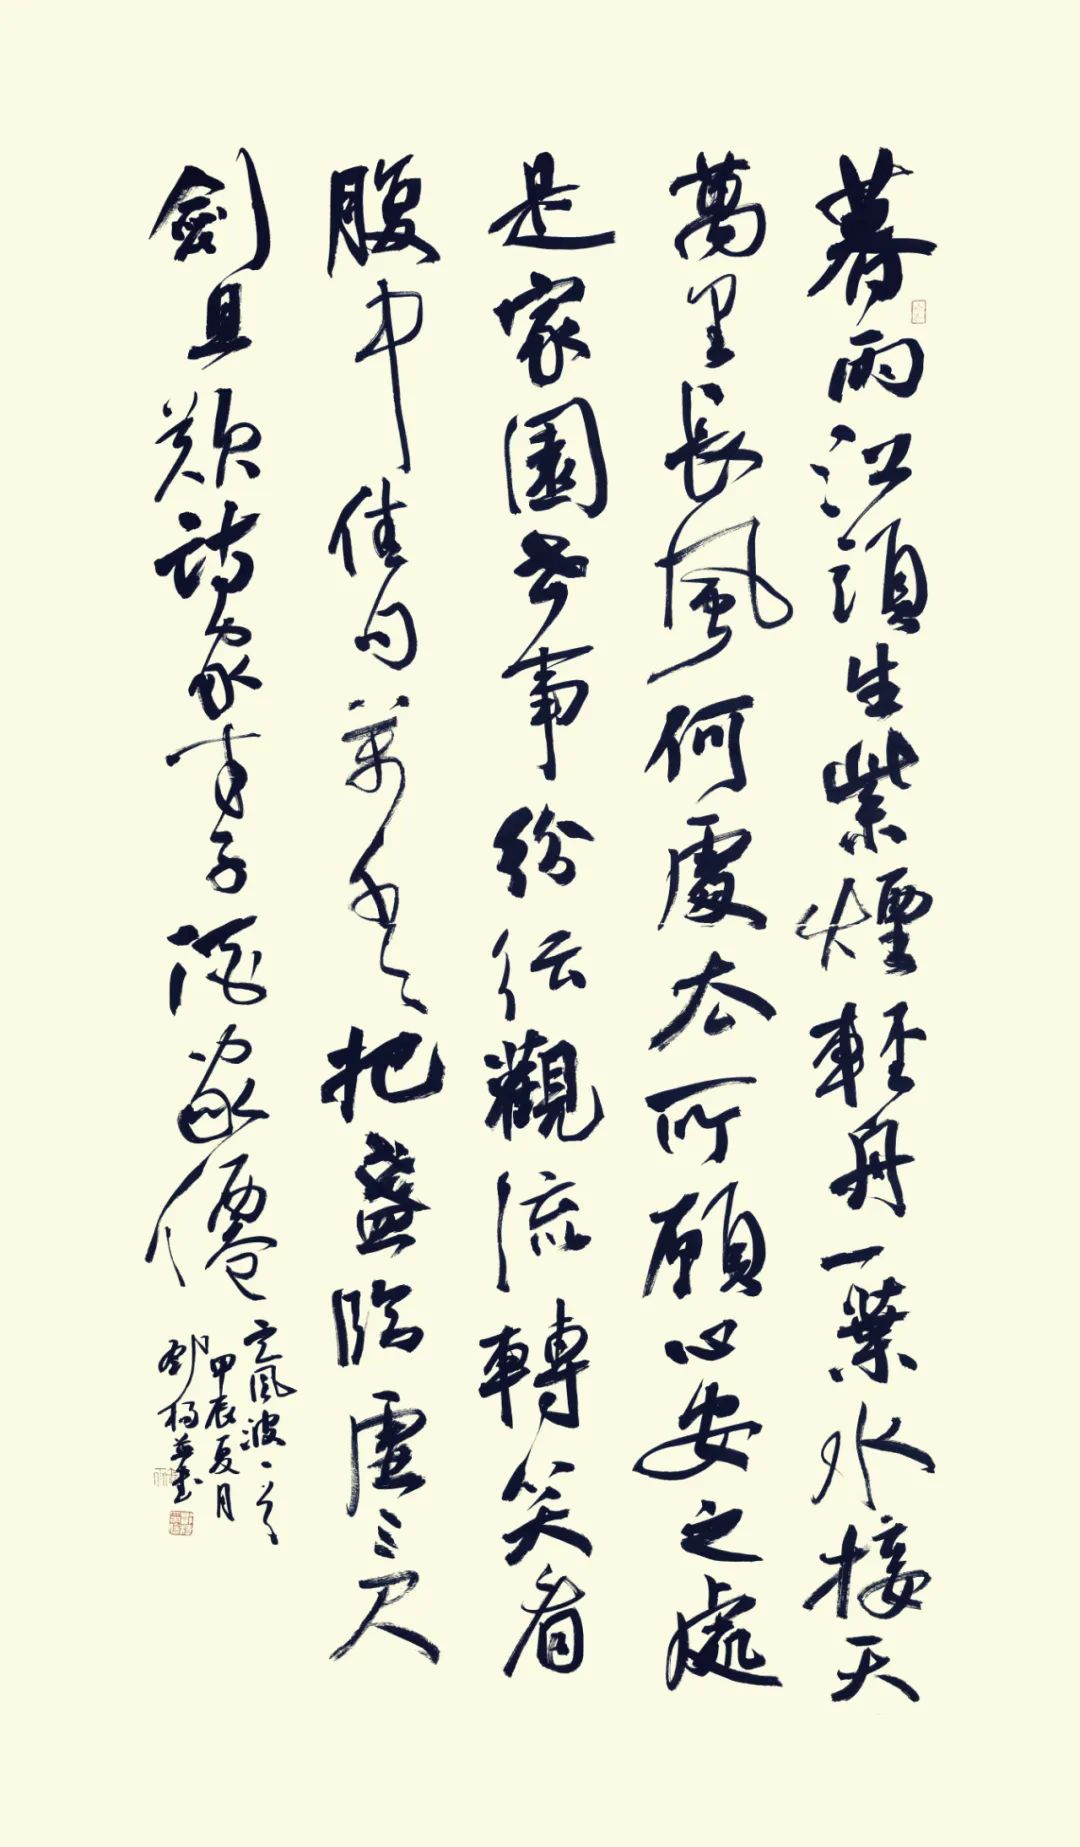 暮雨江頭生紫煙輕舟一葉水接天
萬里長風何處去所願心安之處
是家園世事紛紜觀流轉笑看
腹中佳句萬把盞臨虛三尺
劍且歎詩家才子酒家僊
定風波一首
甲辰夏月